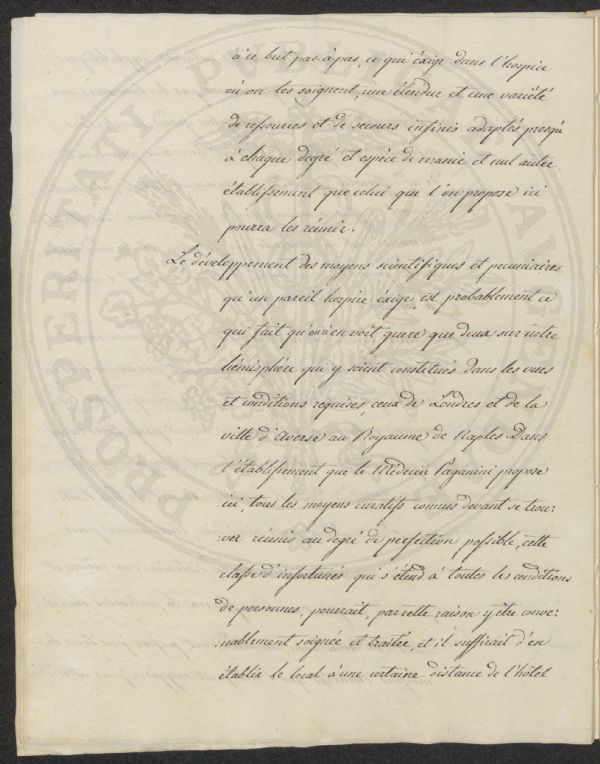 à ce but pas à pas, ce qui éxige dans l'hospice
où on les soignent, une étendue et une variété
de ressources et de secours infinis adaptés presqu'
à chaque degré et espèce de manie et nul autre
établissement que celui que l'on propose ici
pourra les réunir.
Le développement des moyens scientifiques et pecuniaires
qu'un pareil hospice éxige, est probablement ce
qui fait qu'on n'en voit guere que deux sur notre
hémisphère qui y soient constitués dans les vues
et conditions requises, ceux de Londres et de la
ville d'Averse au Royaume de Naples. Dans
l'établissement que le Médecin Paganini propose
ici, tous les moyens curatifs connus devant se trou:
:ver réunis au degré de perfection possible, cette
classe d'infortunés qui s'étend à toutes les conditions
de personnes, pourrait, par cette raison y être conve:
:nablement soignée et traitée, et il suffirait d'en
établir le local à une certaine distance de l'hôtel
PROSPERITATI PUBLICAE AUGENDAE